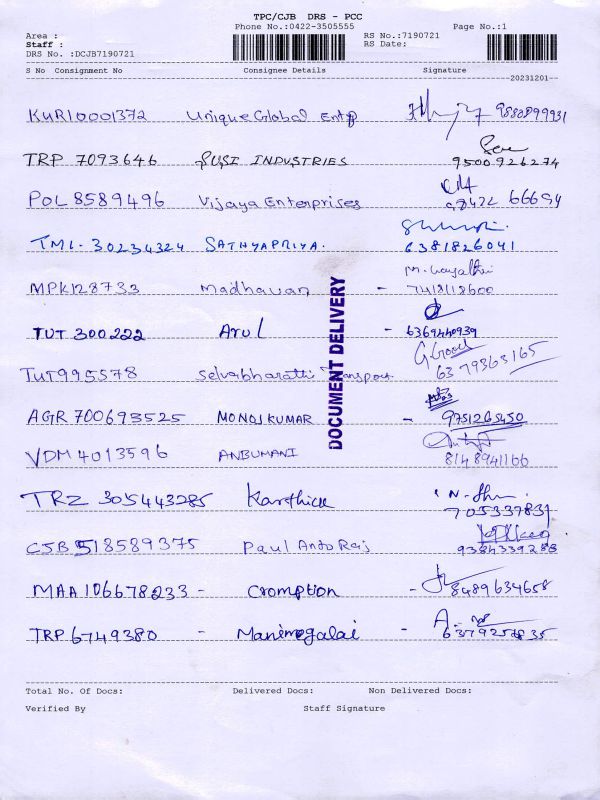 TPC/CJB DRS - PCC
Phone No.:0422-3505555 Page No.:1
Area : RS No.:7190721
Staff : RS Date:
DRS No. :DCJB7190721
S No Consignment No Consignee Details Signature
20231201
KUR10001372 Unique Global Entp 9880899931
TRP 7093646 SUSI INDUSTRIES 9500926274
POL 8589496 Vijaya Enterprises 98422 66694
TML-30234324 SATHYAPRIYA. 6381826041
MPK128733 Madhavan - 7418118600
TUT 300222 Arul - 6369440939
TUT995578 Selvabharathi Transport 63 79363165
AGR 700693525 MONOJKUMAR - 9751265450
VDM 4013596 ANBUMANI 8148941166
TRZ 305443285 Karthick 705339831
CJB 518589375 Paul Anto Raj 9384339288
MAA 106678233 - Crompton - 8489634658
TRP 6749380 - Manimegalai - 6379257835
DOCUMENT DELIVERY
Total No. Of Docs: Delivered Docs: Non Delivered Docs:
Verified By Staff Signature